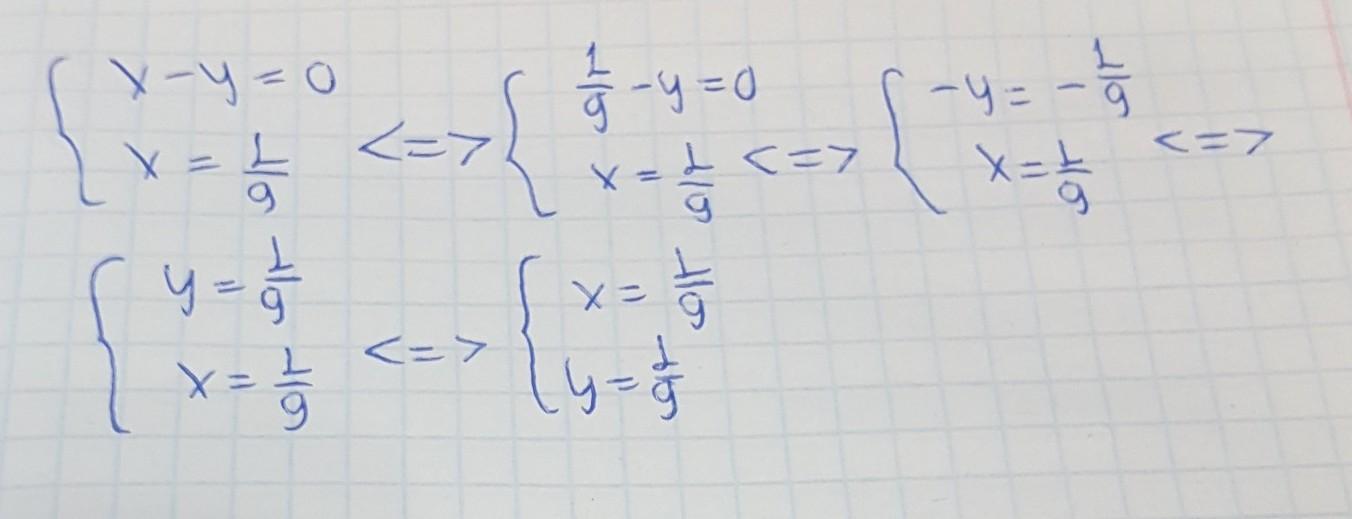 { x - y = 0 <=> { 1/9 - y = 0 <=> { -y = -1/9 <=>
{ x = 1/9 { x = 1/9 { x = 1/9
{ y = 1/9 <=> { x = 1/9
{ x = 1/9 { y = 1/9